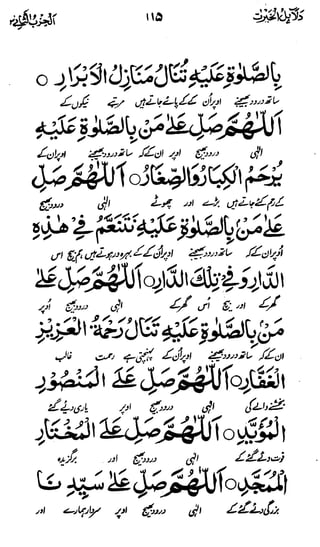 دلائل الخیرات ۱۱۵ الحزب الثانی
بِالصَّلٰوةِ عَلَيْهِ تُنَالُ مَنَازِلُ الْاَبْرَارِ ○
ساتھ درود بھیجنے اوپر اُن کے کے پائے جاتے ہیں مرتبے نیکوں کے
اَللّٰهُمَّ صَلِّ عَلٰى مَنْ بِالصَّلٰوةِ عَلَيْهِ
الٰہی درود بھیج اوپر ان کے کہ ساتھ درود بھیجنے اوپر ان کے
يُرْحَمُ الْكِبَارُ وَالصِّغَارُ ○ اَللّٰهُمَّ صَلِّ
کے رحم کئے جاتے ہیں بڑے اور چھوٹے الٰہی درود بھیج
عَلٰى مَنْ بِالصَّلٰوةِ عَلَيْهِ نَتَنَعَّمُ فِيْ هٰذِهِ
اوپر ان کے کہ ساتھ درود بھیجنے اوپر اُن کے کے بہرہ ور ہوتے ہیں ہم بیچ اس
الدَّارِ وَفِيْ تِلْكَ الدَّارِ ○ اَللّٰهُمَّ صَلِّ عَلٰى
گھر کے اور بیچ اُس گھر کے الٰہی درود بھیج اوپر
مَنْ بِالصَّلٰوةِ عَلَيْهِ تَنَالُ رَحْمَةُ الْعَزِيْزِ
ان کے کہ ساتھ درود بھیجنے اوپر اُن کے پہنچتی ہے رحمت غالب
الْغَفَّارِ ○ اَللّٰهُمَّ صَلِّ عَلَى الْمَنْصُوْرِ
بخشنے والے کی الٰہی درود بھیج اوپر یاری دیئے گئے
الْمُؤَيَّدِ ○ اَللّٰهُمَّ صَلِّ عَلَى الْمُخْتَارِ
قوت دیئے گئے کے الٰہی درود بھیج اوپر برگزیدہ
الْمُمَجَّدِ ○ اَللّٰهُمَّ صَلِّ عَلٰى سَيِّدِنَا
بزرگی دیئے گئے کے الٰہی درود بھیج اوپر سردار ہمارے اور